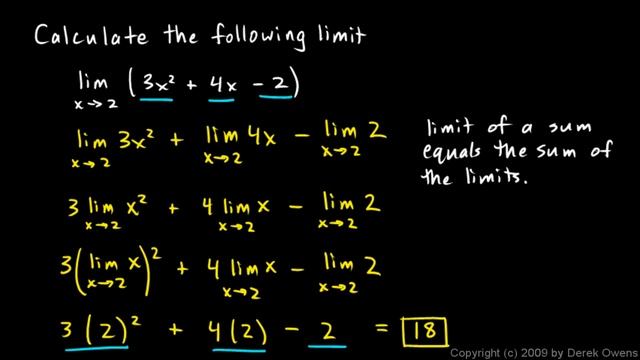 Calculate the following limit
lim x→2 (3x² + 4x − 2)
lim x→2 3x² + lim x→2 4x − lim x→2 2
limit of a sum
equals the sum of
the limits.
3 lim x→2 x² + 4 lim x→2 x − lim x→2 2
3(lim x→2 x)² + 4 lim x→2 x − lim x→2 2
3(2)² + 4(2) − 2 = 18
Copyright (c) 2009 by Derek Owens